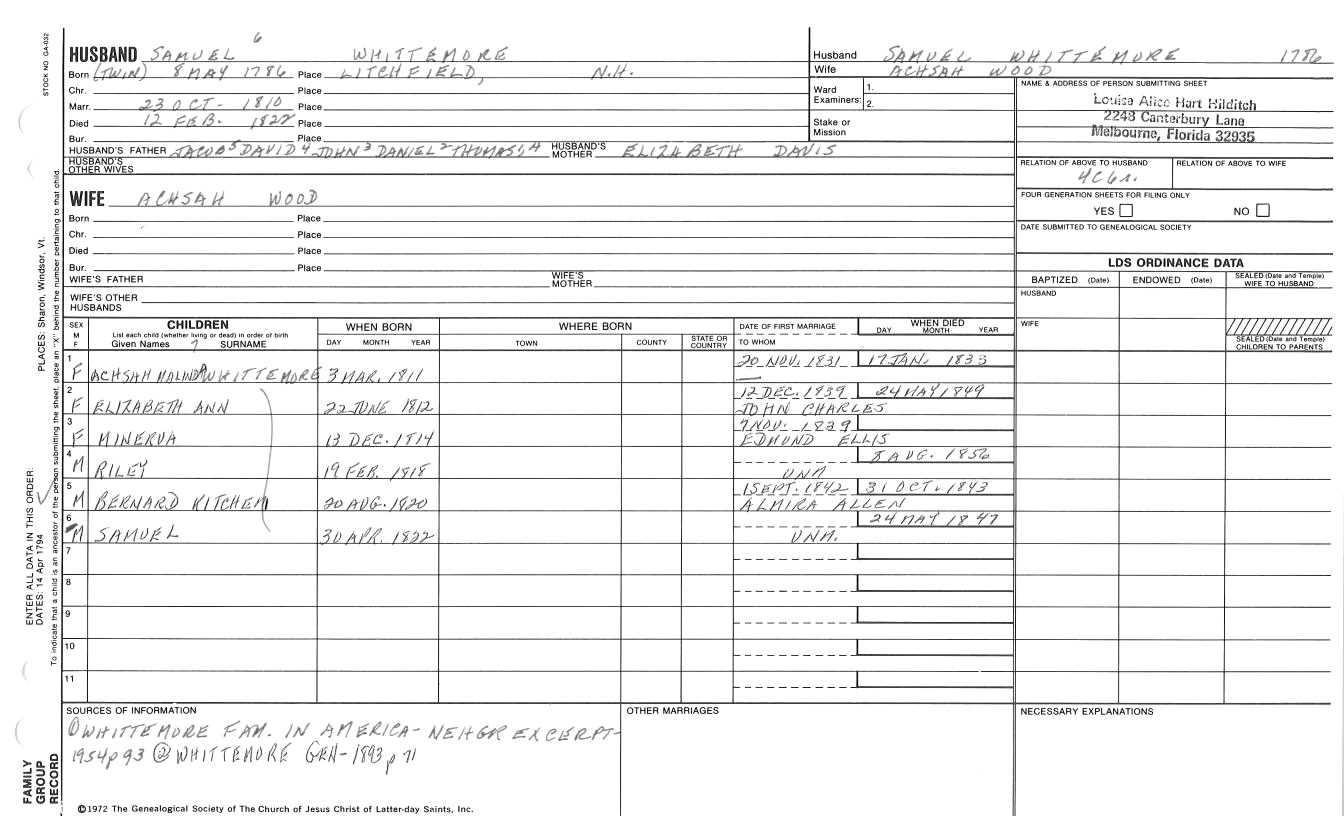 STOCK NO. GA-032
PLACES: Sharon, Windsor, Vt.
ENTER ALL DATA IN THIS ORDER:
DATES: 14 Apr 1794
To indicate that a child is an ancestor of the person submitting the sheet, place an "X" behind the number pertaining to that child.
FAMILY GROUP RECORD
6
HUSBAND SAMUEL WHITTEMORE
Born (TWIN) 8 MAY 1786 Place LITCHFIELD, N.H.
Chr. Place
Marr. 23 OCT- 1810 Place
Died 12 FEB. 1822 Place
Bur. Place
HUSBAND'S FATHER JACOB5 DAVID4 JOHN3 DANIEL2 THOMAS1,A HUSBAND'S MOTHER ELIZABETH DAVIS
HUSBAND'S OTHER WIVES
Husband SAMUEL WHITTEMORE 1786
Wife ACHSAH WOOD
Ward Examiners: 1. 2.
Stake or Mission
NAME & ADDRESS OF PERSON SUBMITTING SHEET
Louise Alice Hart Hilditch
2243 Canterbury Lane
Melbourne, Florida 32935
RELATION OF ABOVE TO HUSBAND RELATION OF ABOVE TO WIFE
4C6r.
FOUR GENERATION SHEETS FOR FILING ONLY
YES NO
DATE SUBMITTED TO GENEALOGICAL SOCIETY
WIFE ACHSAH WOOD
Born Place
Chr. Place
Died Place
Bur. Place
WIFE'S FATHER WIFE'S MOTHER
WIFE'S OTHER HUSBANDS
LDS ORDINANCE DATA
BAPTIZED (Date) ENDOWED (Date) SEALED (Date and Temple) WIFE TO HUSBAND
HUSBAND
WIFE
SEALED (Date and Temple) CHILDREN TO PARENTS
SEX M F CHILDREN WHEN BORN WHERE BORN DATE OF FIRST MARRIAGE WHEN DIED
List each child (whether living or dead) in order of birth
Given Names 7 SURNAME DAY MONTH YEAR TOWN COUNTY STATE OR COUNTRY TO WHOM DAY MONTH YEAR
1 F ACHSAH MALINDA WHITTEMORE 3 MAR. 1811 20 NOV. 1831 17 JAN. 1833
2 F ELIZABETH ANN 22 JUNE 1812 12 DEC. 1839 24 MAY 1849
JOHN CHARLES
3 F MINERVA 13 DEC. 1814 7 NOV. 1839
EDMUND ELLIS
4 M RILEY 19 FEB. 1818 8 AUG. 1856
UNM
5 M BERNARD KITCHEN 20 AUG. 1820 1 SEPT. 1842 31 OCT. 1843
ALMIRA ALLEN
6 M SAMUEL 30 APR. 1822 24 MAY 1847
UNM.
7
8
9
10
11
SOURCES OF INFORMATION
①WHITTEMORE FAM. IN AMERICA- NEHGR EXCERPT-
1954p93 ②WHITTEMORE GEN-1893 p 71
OTHER MARRIAGES
NECESSARY EXPLANATIONS
©1972 The Genealogical Society of The Church of Jesus Christ of Latter-day Saints, Inc.